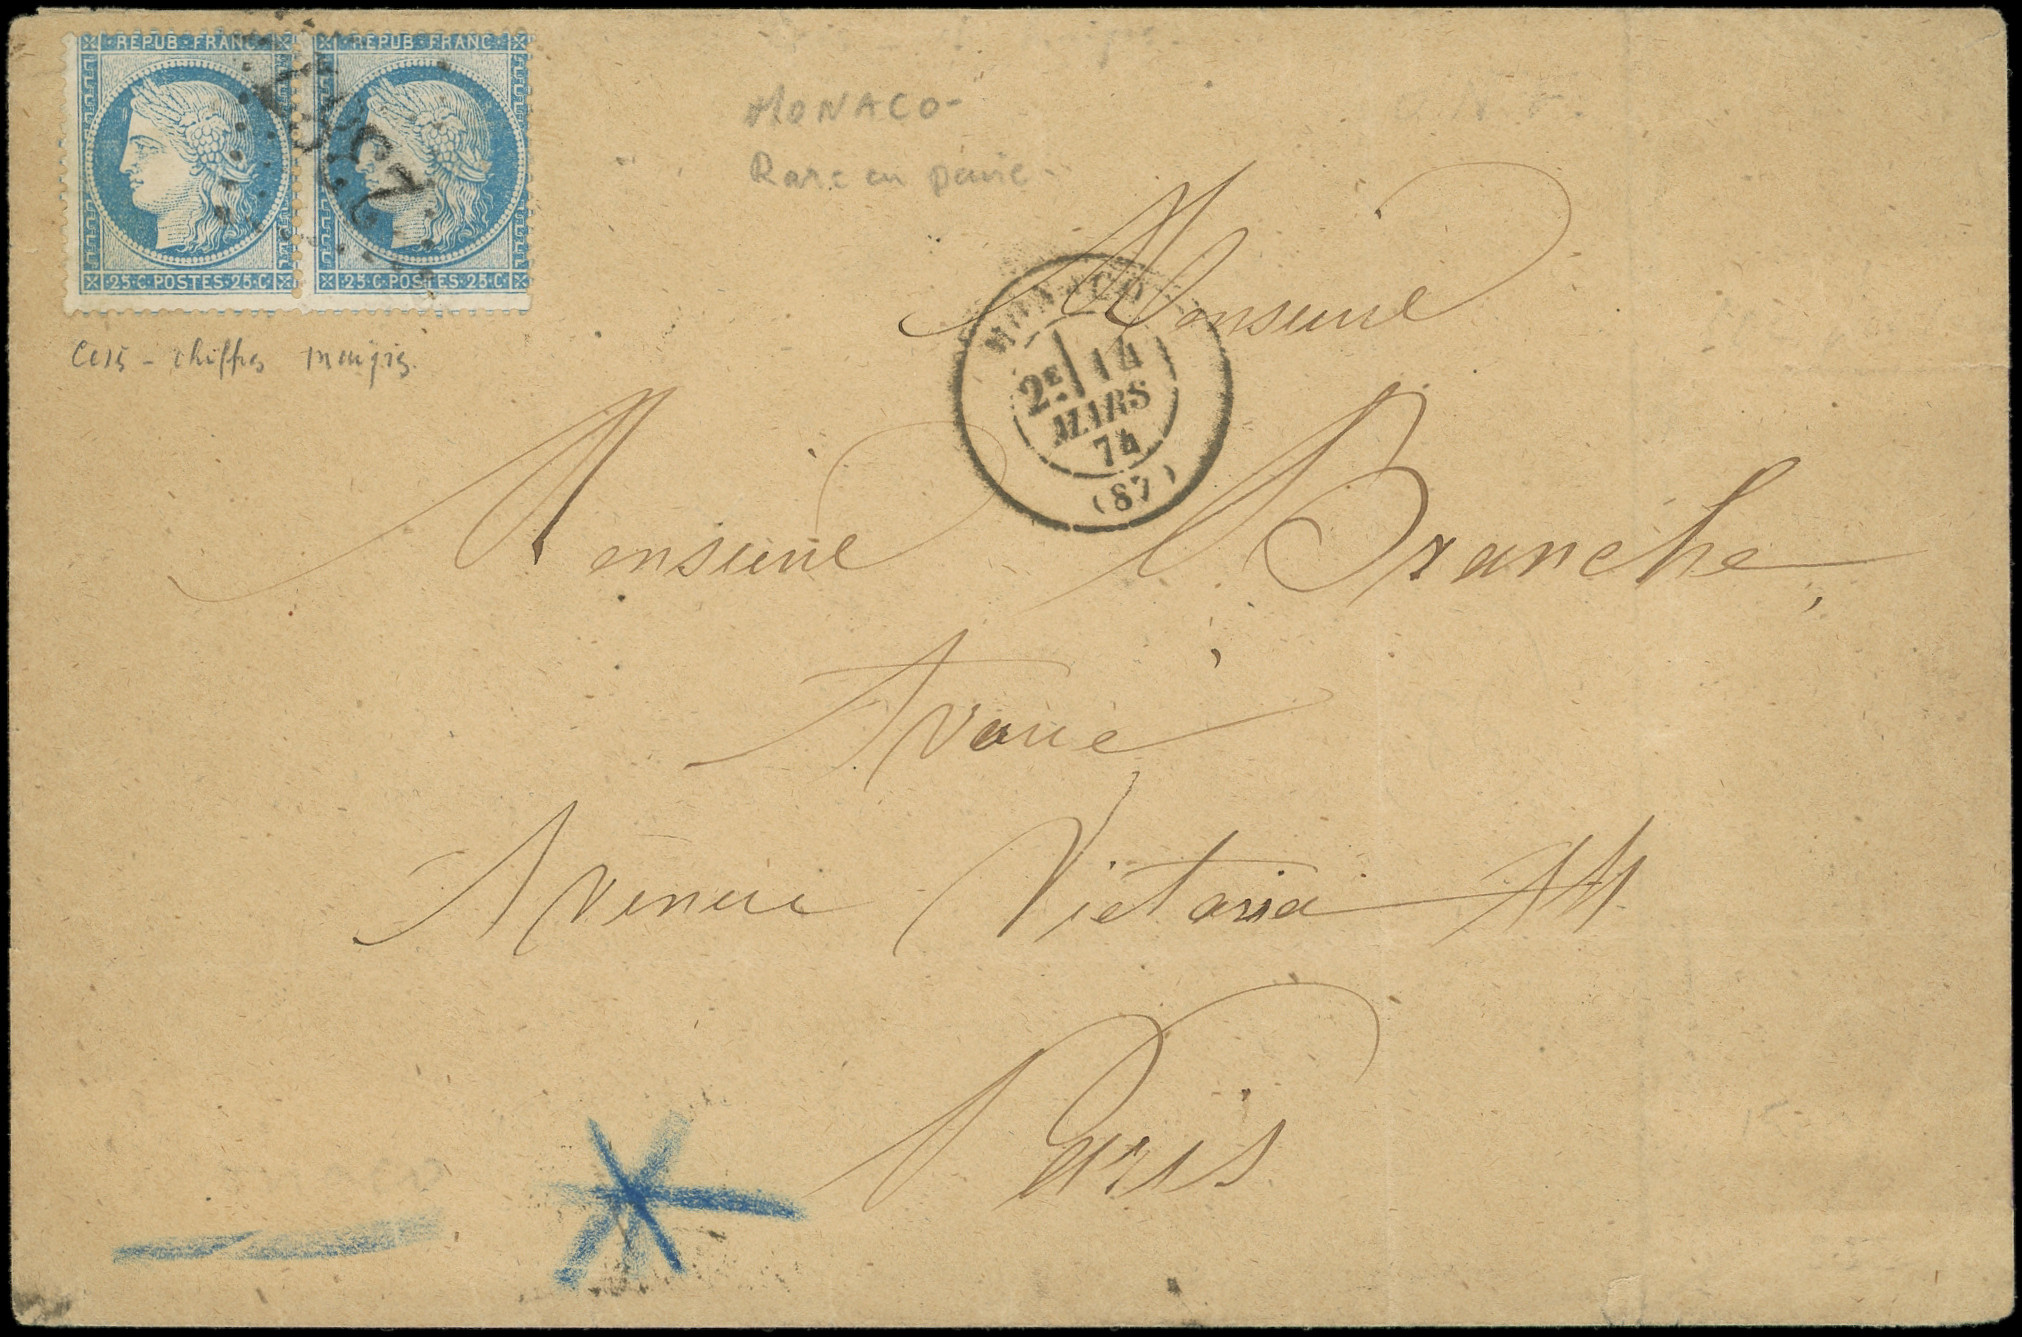 REPUB·FRANC· REPUB·FRANC·
2387
25·C·POSTES·25·C· 25·C·POSTES·25·C·
chiffres maigres.
MONACO-
Rare en paire-
MONACO
2E 14
MARS
74
(87)
Monsieur
Monsieur Branche
Avoué
Avenue Victoria
Paris